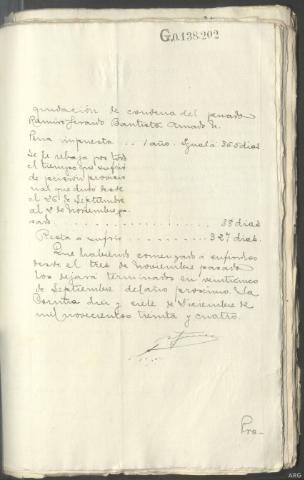 G.0.138.202
quidación de condena del penado
Ramiro Gerardo Bautista Amado
Pena impuesta ... 1 año. Igual a 365 dias
Se le rebaja por todo
el tiempo que sufrio
de prisión provisio
nal que duró desde
el 26 de Septembre
al 2 de Noviembre pa
sado ... 38 dias
Resta a sufrir ... 327 dias.
Que habiendo comenzado a sufrirlos
desde el tres de Noviembre pasado
los dejará terminados en veinticinco
de Septiembre del año proximo. La
Coruña diez y siete de Diciembre de
mil novecientos treinta y cuatro.
Pro-
ARG